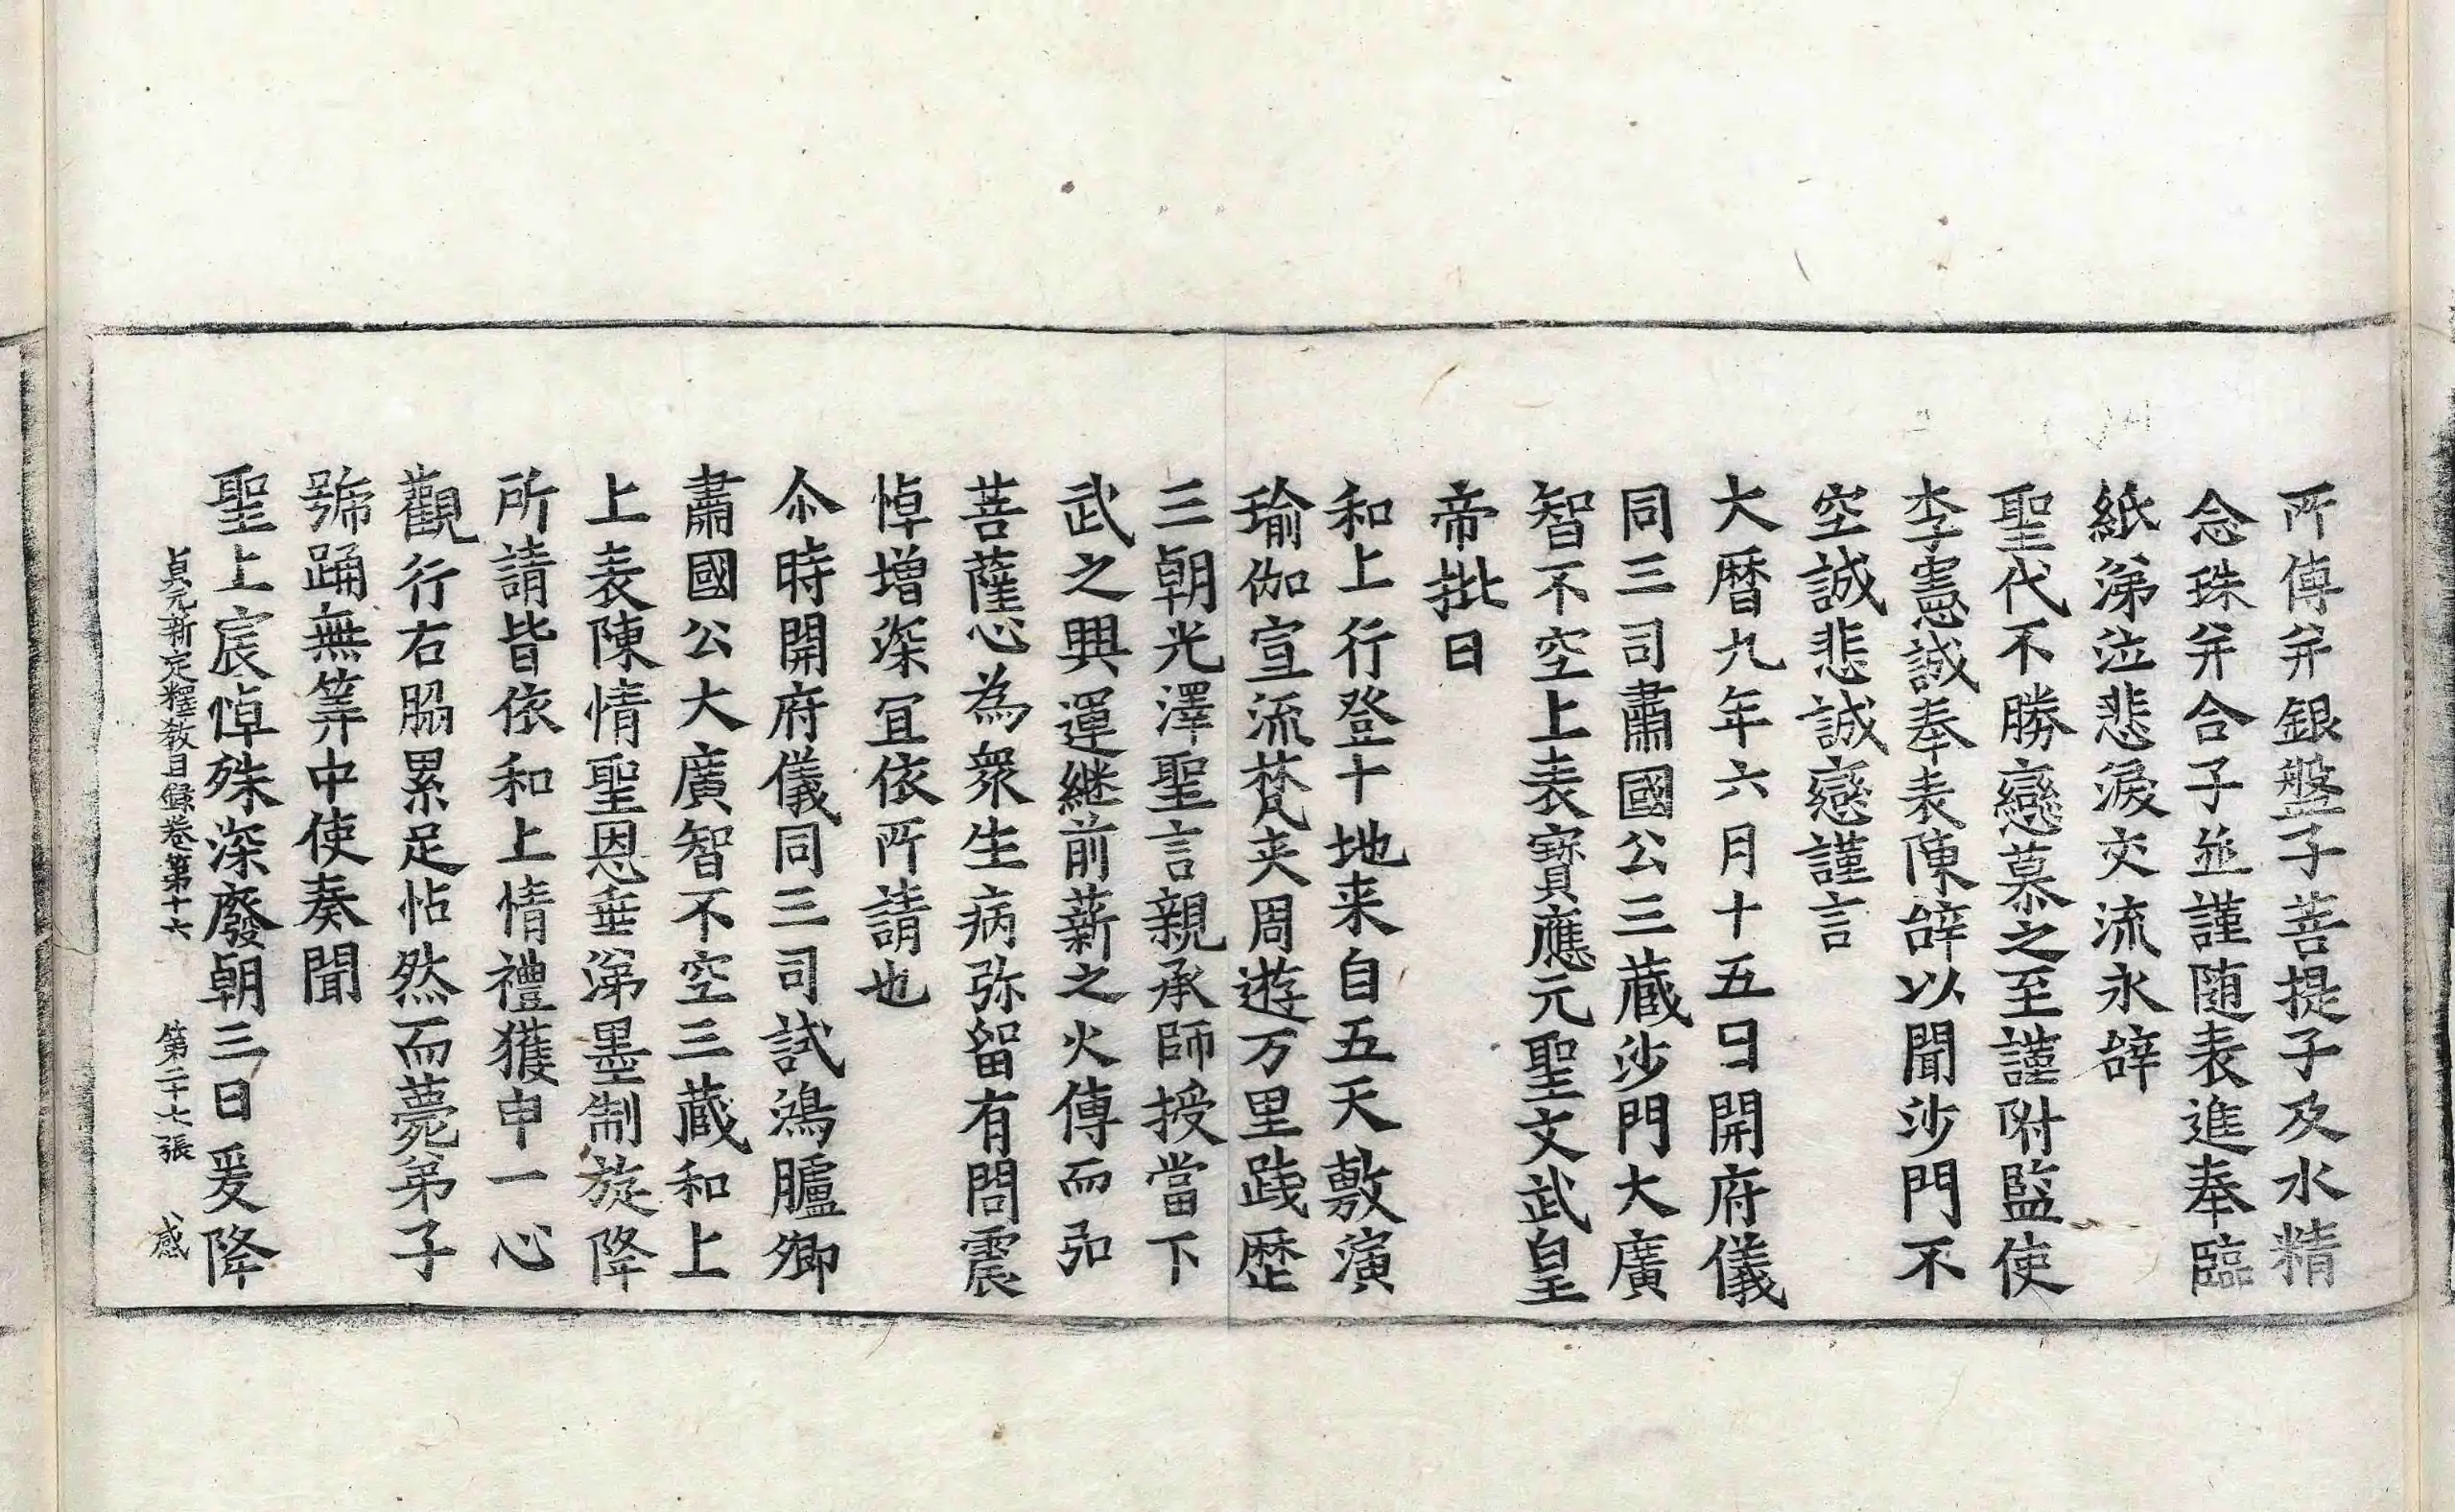 所傳并銀盤子菩提子及水精
念珠并合子並謹随表進奉臨
紙涕泣悲淚交流永辝
聖代不勝戀慕之至謹附監使
李憲誠奉表陳辝以聞沙門不
空誠悲誠戀謹言
大曆九年六月十五日開府儀
同三司肅國公三蔵沙門大廣
智不空上表寳應元聖文武皇
帝批曰
和上行登十地来自五天敷演
瑜伽宣流梵夹周遊万里踐歴
三朝光澤聖言親承師授當下
武之興運継前薪之火傳而弘
菩薩心為衆生病弥留有問震
悼增深冝依所請也
尒時開府儀同三司試鴻臚卿
肅國公大廣智不空三蔵和上
上表陳情聖恩垂涕墨制旋降
所請皆依和上情禮獲申一心
觀行右脇累足怗然而薨弟子
號踊無筭中使奏聞
聖上宸悼殊深廢朝三日爰降
貞元新定釋教目録卷第十六 第二十七張 感